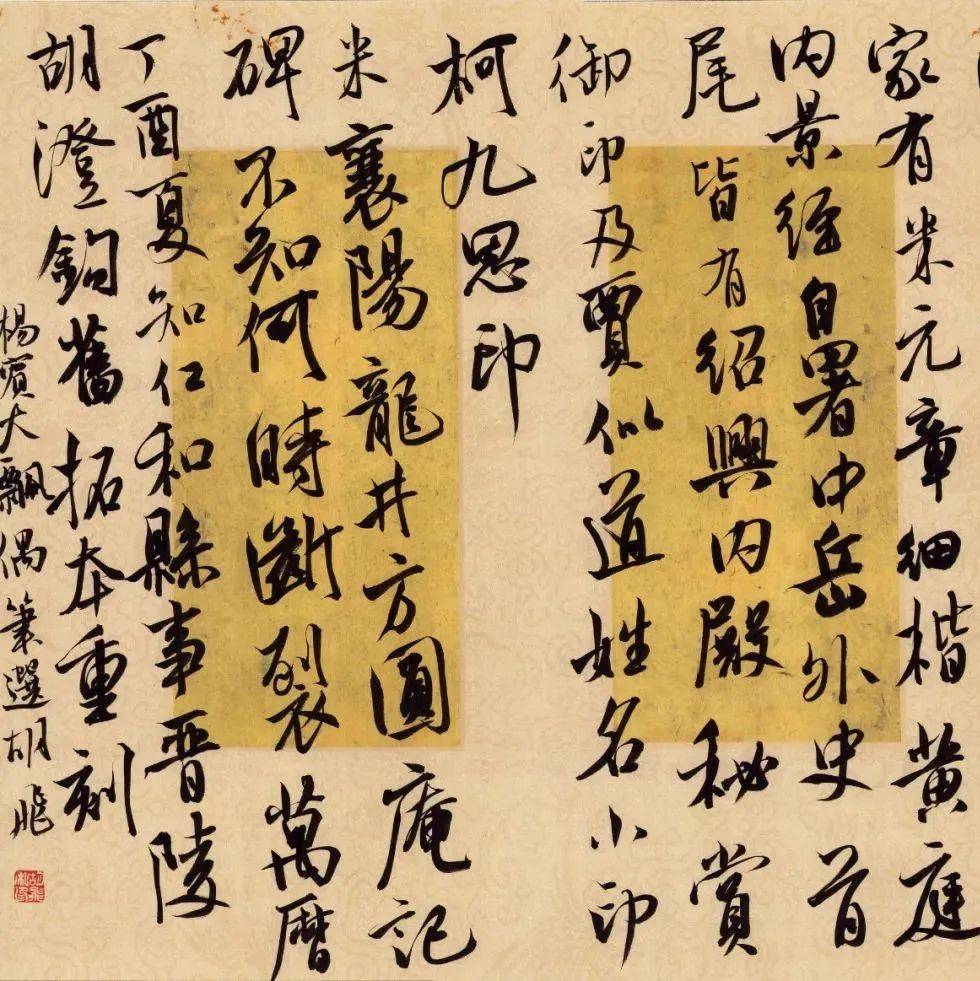 家有米元章细楷黄庭
内景经自署中岳外史首
尾皆有绍興内殿秘赏
御印及賈似道姓名小印
柯九思印
米襄陽龍井方圓庵記
碑不知何時斷裂萬曆
丁酉夏知仁和縣事晋陵
胡澄鈞舊拓本重刻
楊賓大瓢偶筆選胡飛